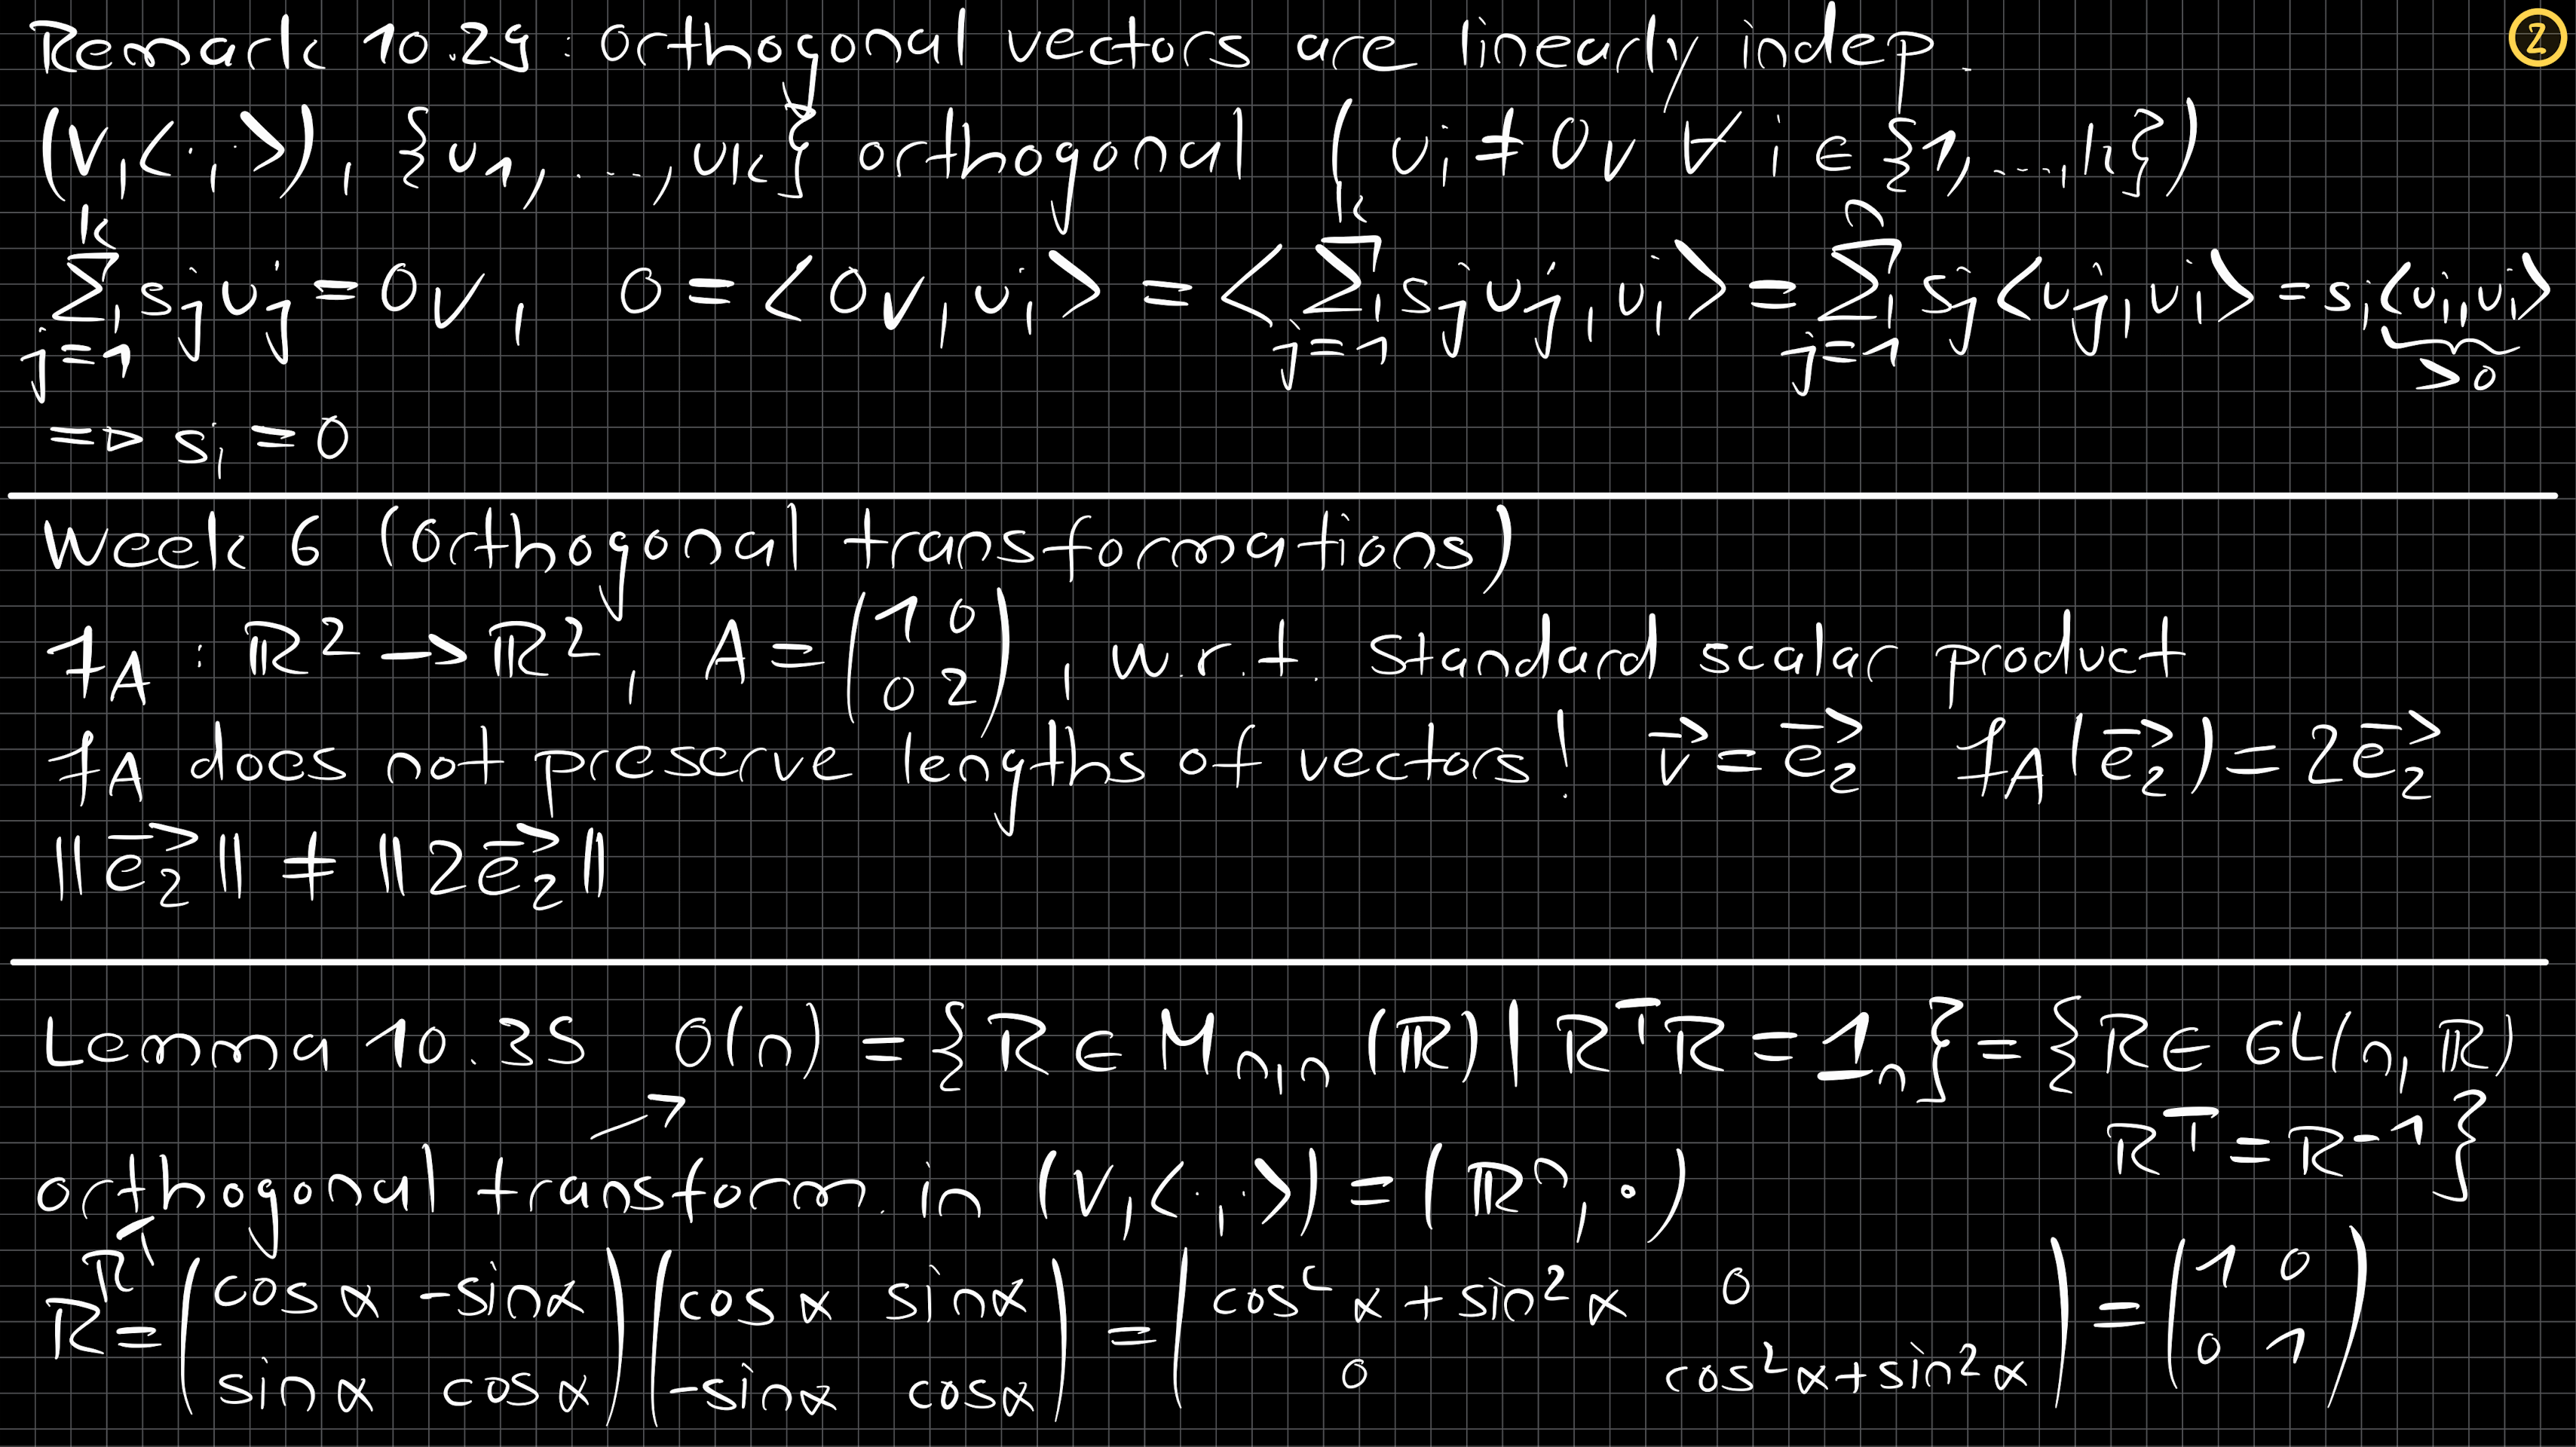 Remark 10.29: orthogonal vectors are linearly indep. ②
(V,<·,·>), {v1, ..., vk} orthogonal (vi ≠ 0V ∀ i ∈ {1, ..., k})
∑_{j=1}^{k} sj vj = 0V, 0 = <0V, vi> = <∑_{j=1}^{k} sj vj, vi> = ∑_{j=1}^{n} sj <vj, vi> = si <vi, vi>
>0
=> si = 0
Week 6 (Orthogonal transformations)
fA : ℝ² → ℝ², A = (1 0; 0 2), w.r.t. standard scalar product
fA does not preserve lengths of vectors! v⃗ = e⃗2 fA(e⃗2) = 2e⃗2
||e⃗2|| ≠ ||2e⃗2||
Lemma 10.35 O(n) = {R ∈ Mn,n (ℝ) | RᵀR = 1n} = {R ∈ GL(n, ℝ)
→ Rᵀ = R⁻¹}
orthogonal transform. in (V,<·,·>) = (ℝⁿ, ·)
Rᵀ
R = (cos α -sin α; sin α cos α)(cos α sin α; -sin α cos α) = (cos² α + sin² α 0; 0 cos² α + sin² α) = (1 0; 0 1)